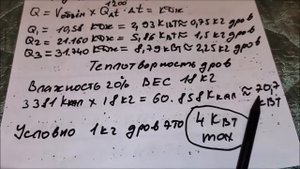 1200
Q = Vбойл · Qат · Δt = кДж
Q1 = 10,58 кДж = 2,93 кВт ≈ 0,75 кг дров
Q2 = 21.160 кДж = 5,86 кВт ≈ 1,5 кг дров
Q3 = 31.740 кДж = 8,79 кВт ≈ 2,25 кг дров
Теплотворность дров
Влажность 20% ВЕС 18 кг
3381 Ккал × 18 кг = 60.858 Ккал ≈ 70,7 кВт
Условно 1 кг дров это 4 кВт max